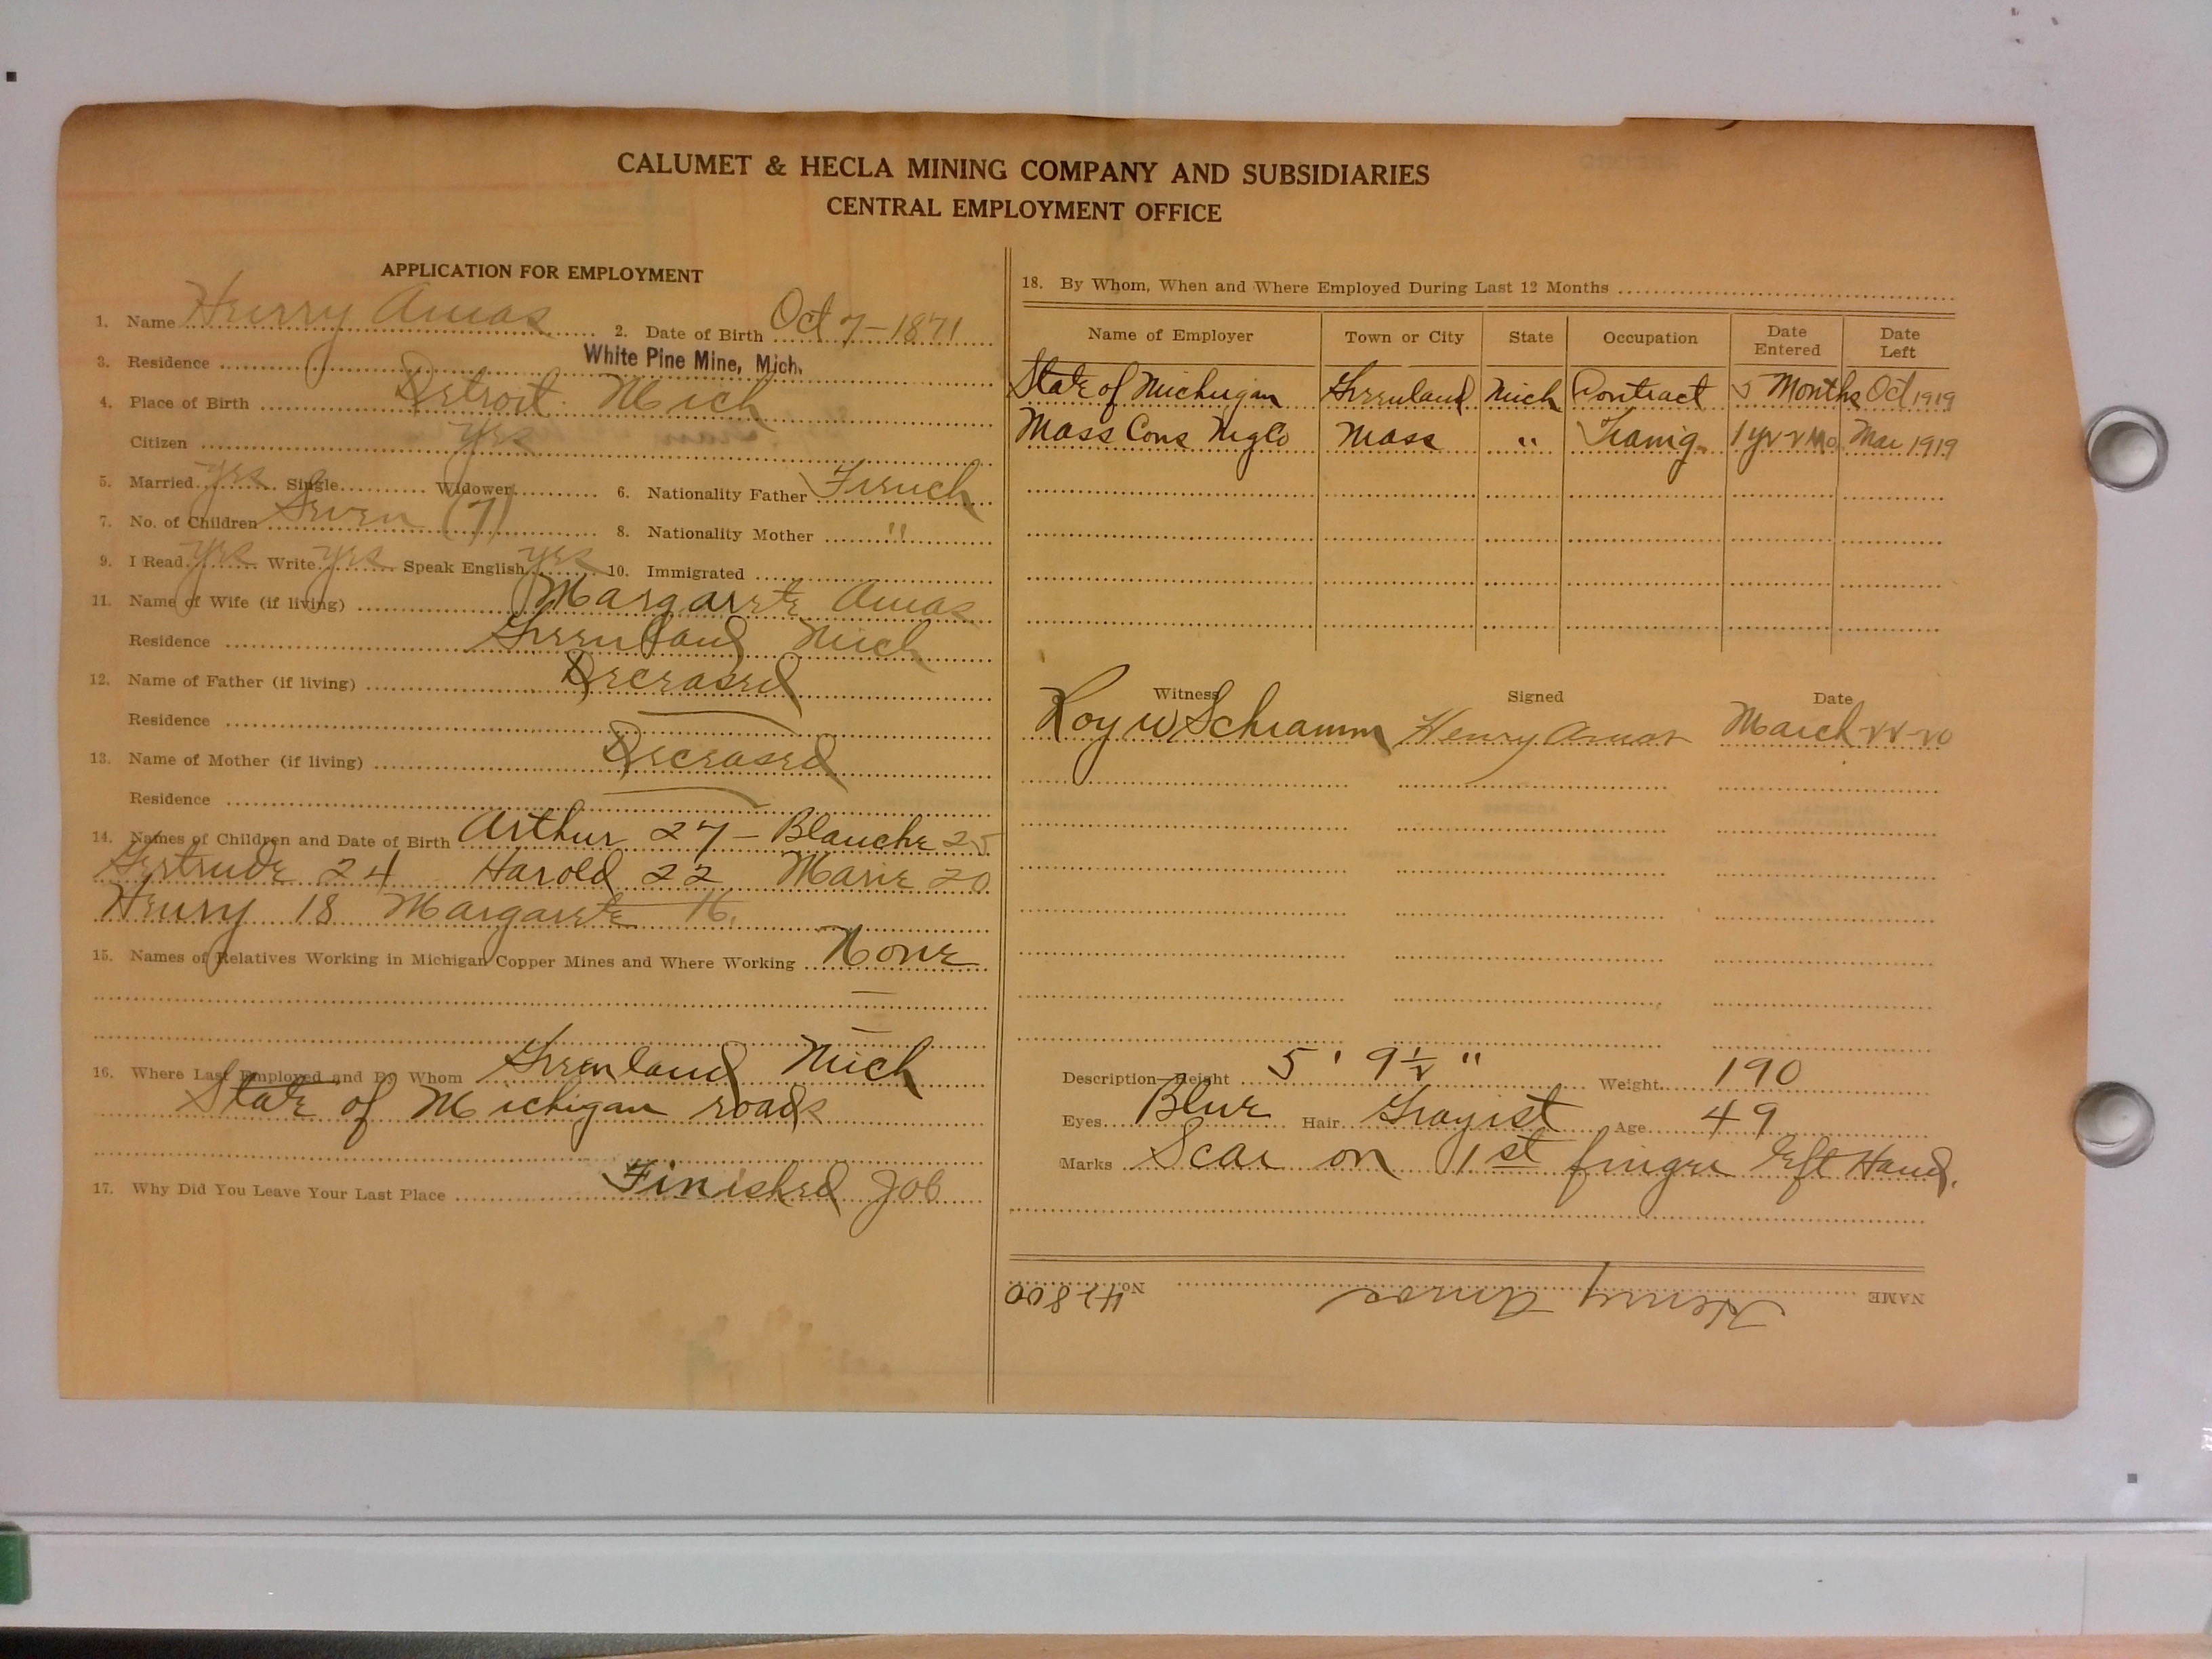 CALUMET & HECLA MINING COMPANY AND SUBSIDIARIES
CENTRAL EMPLOYMENT OFFICE
APPLICATION FOR EMPLOYMENT
1. Name Henry Amas 2. Date of Birth Oct 7-1871
3. Residence White Pine Mine, Mich.
4. Place of Birth Detroit Mich
Citizen yes
5. Married yes Single Widower 6. Nationality Father French
7. No. of Children Seven (7) 8. Nationality Mother "
9. I Read yes Write yes Speak English yes 10. Immigrated
11. Name of Wife (if living) Margarete Amas
Residence Greenland Mich
12. Name of Father (if living) Deceased
Residence
13. Name of Mother (if living) Deceased
Residence
14. Names of Children and Date of Birth Arthur 27 - Blanche 25
Gertrude 24 Harold 22 Marie 20
Henry 18 Margarete 16.
15. Names of Relatives Working in Michigan Copper Mines and Where Working None
16. Where Last Employed and By Whom Greenland Mich
State of Michigan roads
17. Why Did You Leave Your Last Place Finished Job
18. By Whom, When and Where Employed During Last 12 Months
Name of Employer Town or City State Occupation Date Entered Date Left
State of Michigan Greenland Mich Contract 5 Months Oct 1919
Mass Cons Mass " 1 yr 2 Mo. Mar 1919
Witness Signed Date
Roy W Schramm Henry Amas March 22-20
Description—Height 5' 9½" Weight 190
Eyes Blue Hair Grayist Age 49
Marks Scar on 1st finger left Hand.
NAME Henry Amas No. 42800